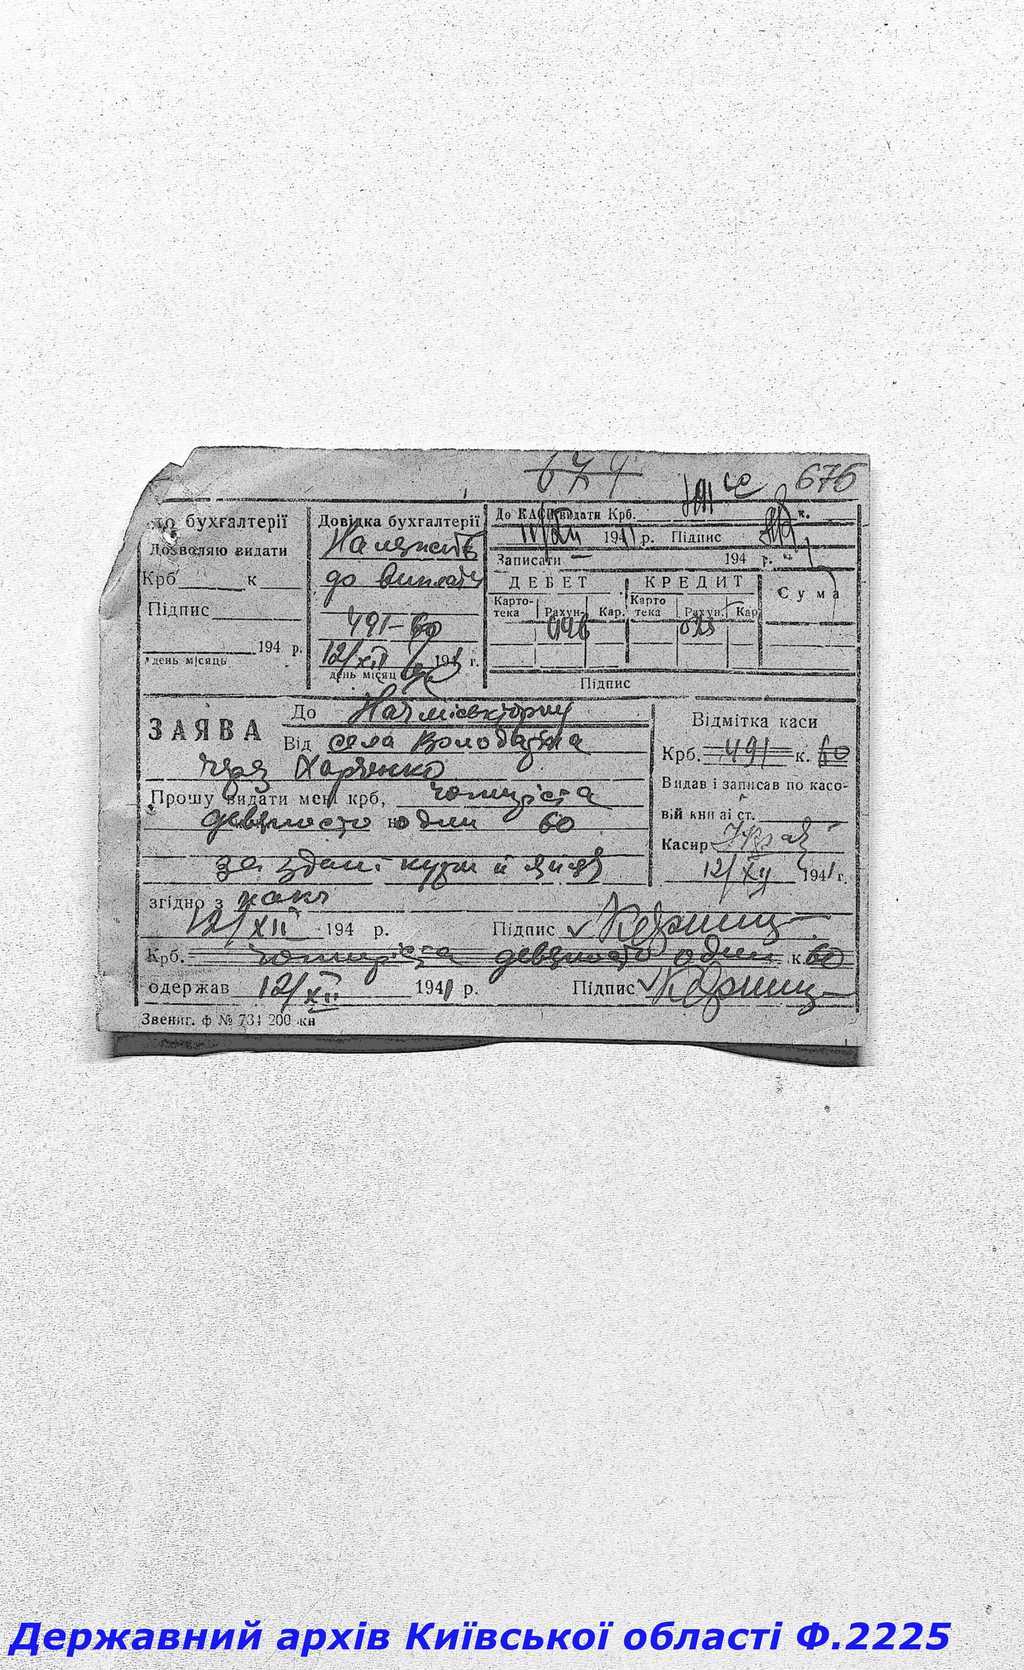 674 676
До бухгалтерії
Дозволяю видати
Крб к
Підпис
194 р.
день місяць
Довідка бухгалтерії
Належить
до виплати
491-60
12/XII 194 г.
день місяц
До КАСИ видати Крб. к.
11/XII 1941 р. Підпис
Записати — 194 г. "
ДЕБЕТ КРЕДИТ Сума
Картотека Рахун. Кар. Картотека Рахун. Кар
Підпис
ЗАЯВА
До
Від села Володарка
через Харченко
Прошу видати мені крб, чотириста
девяносто один 60
за здані кури й яйця
згідно з
12/XII 194 р. Підпис
Крб. чотириста девяносто один к. 60
одержав 12/XII 1941 р. Підпис
Відмітка каси
Крб. 491 к. 60
Видав і записав по касо-
вій книзі ст.
Касир
12/XII 1941 г.
Звениг. ф № 734 200 кн
Державний архів Київської області Ф.2225